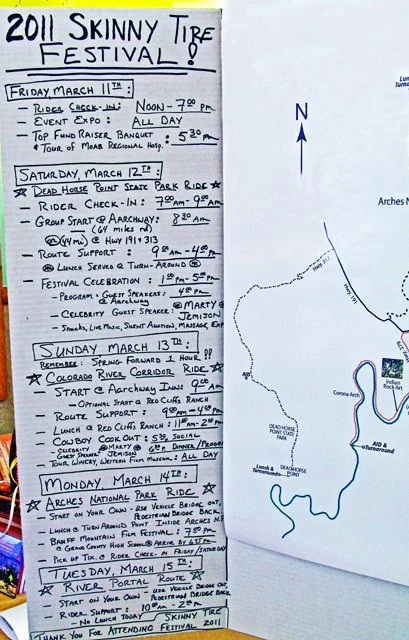 2011 SKINNY TIRE
FESTIVAL!
FRIDAY, MARCH 11TH:
- RIDER CHECK-IN: NOON - 7:00 PM
- EVENT EXPO: ALL DAY
- TOP FUND RAISER BANQUET : 5:30 PM
& TOUR OF MOAB REGIONAL HOSP.
SATURDAY, MARCH 12TH:
DEAD HORSE POINT STATE PARK RIDE
- RIDER CHECK-IN: 7:00 AM - 9:00 AM
- GROUP START @ AARCHWAY: 8:30 AM
(64 MILES RD)
(44 MI) @ HWY 191 & 313
- ROUTE SUPPORT: 9:00 AM - 4:00 PM
LUNCH SERVED @ TURN-AROUND
- FESTIVAL CELEBRATION: 1:00 PM - 5:00 PM
- PROGRAM & GUEST SPEAKERS: 4:00 PM
@ AARCHWAY
- CELEBRITY GUEST SPEAKER: MARTY
JEMISON
- SNACKS, LIVE MUSIC, SILENT AUCTION, MASSAGE, EXP
SUNDAY MARCH 13TH:
REMEMBER: SPRING FORWARD 1 HOUR!!
COLORADO RIVER CORRIDOR RIDE
- START @ AARCHWAY INNS 9:00 AM
- OPTIONAL START @ RED CLIFFS RANCH
- ROUTE SUPPORT: 9:00 AM - 4:00 PM
- LUNCH @ RED CLIFFS RANCH 11:00 AM - 2:00 PM
- COWBOY COOKOUT: 5:30 SOCIAL
- CELEBRITY GUEST SPEAKER MARTY JEMISON 6:30 PM DINNER/PROGRAM
- TOUR WINERY, WESTERN FILM MUSEUM: ALL DAY
MONDAY, MARCH 14TH:
ARCHES NATIONAL PARK RIDE
- START ON YOUR OWN - USE VEHICLE BRIDGE OUT,
PEDESTRIAN BRIDGE BACK
- LUNCH @ TURN AROUND POINT INSIDE ARCHES N.P.
- BANFF MOUNTAINS FILM FESTIVAL: 7:00 PM
@ GRAND COUNTY HIGH SCHOOL ARRIVE BY 6:45 PM
PICK UP TIX. @ RIDER CHECK-IN FRIDAY/SATURDAY
TUESDAY, MARCH 15TH:
RIVER PORTAL ROUTE
- START ON YOUR OWN - USE VEHICLE BRIDGE OUT,
PEDESTRIAN BRIDGE BACK
- RIDER SUPPORT: 10:00 AM - 2:00 PM
- NO LUNCH TODAY
THANK YOU FOR ATTENDING SKINNY TIRE FESTIVAL 2011
N
Arches N
Hwy. 313
Hwy. 191
Indian
Rock Art
Corona Arch
AID
AID &
Turnaround
DEAD HORSE
POINT STATE
PARK
Lunch &
Turnaround
DEADHORSE
POINT